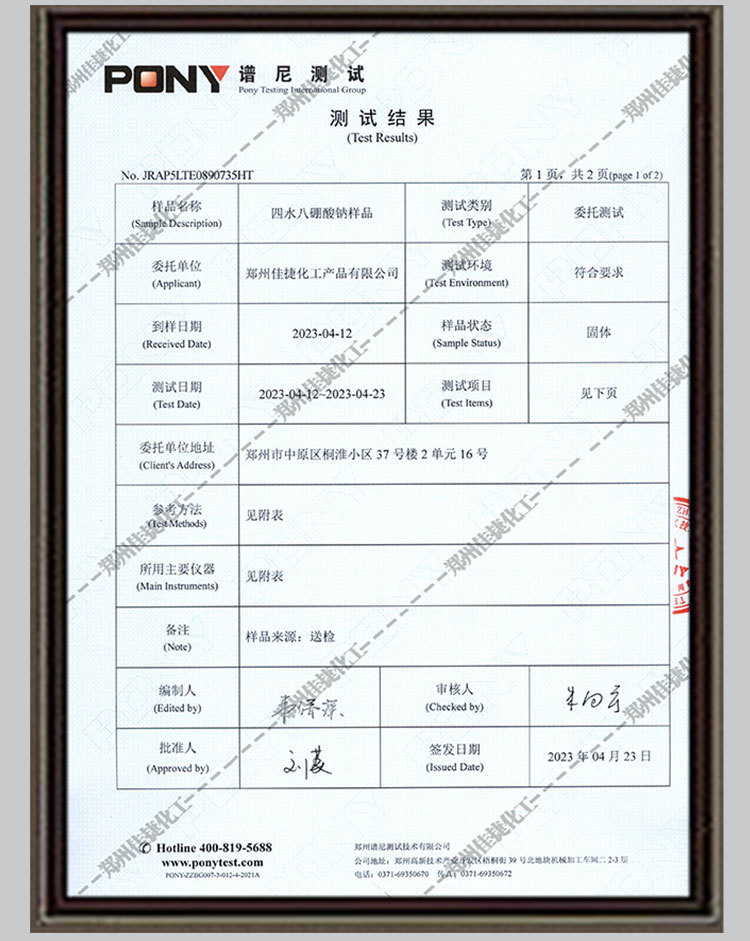 PONY 谱尼测试
Pony Testing International Group
测试结果
(Test Results)
No. JRAP5LTE0890735HT 第 1 页，共 2 页(page 1 of 2)
样品名称 四水八硼酸钠样品 测试类别 委托测试
(Sample Description) (Test Type)
委托单位 郑州佳捷化工产品有限公司 测试环境 符合要求
(Applicant) (Test Environment)
到样日期 2023-04-12 样品状态 固体
(Received Date) (Sample Status)
测试日期 2023-04-12~2023-04-23 测试项目 见下页
(Test Date) (Test Items)
委托单位地址 郑州市中原区桐淮小区 37 号楼 2 单元 16 号
(Client's Address)
参考方法 见附表
(Test Methods)
所用主要仪器 见附表
(Main Instruments)
备注 样品来源：送检
(Note)
编制人 审核人
(Edited by) (Checked by)
批准人 签发日期 2023 年 04 月 23 日
(Approved by) (Issued Date)
Hotline 400-819-5688
www.ponytest.com
PONY-ZZBG007-3-012-4-2021A
郑州谱尼测试技术有限公司
公司地址：郑州高新技术产业开发区梧桐街 39 号北地块机械加工车间二 2-3 层
电话：0371-69350670 传真：0371-69350672
郑州佳捷化工